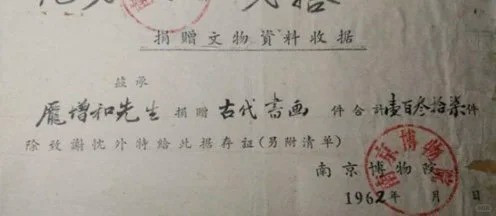 捐赠文物資料收据
兹承
龐增和先生捐贈古代書画 件合計壹百叁拾柒件
除致謝忱外特給此据存証(另附清单)
南京博物院
1962年 月 日
南京博物院